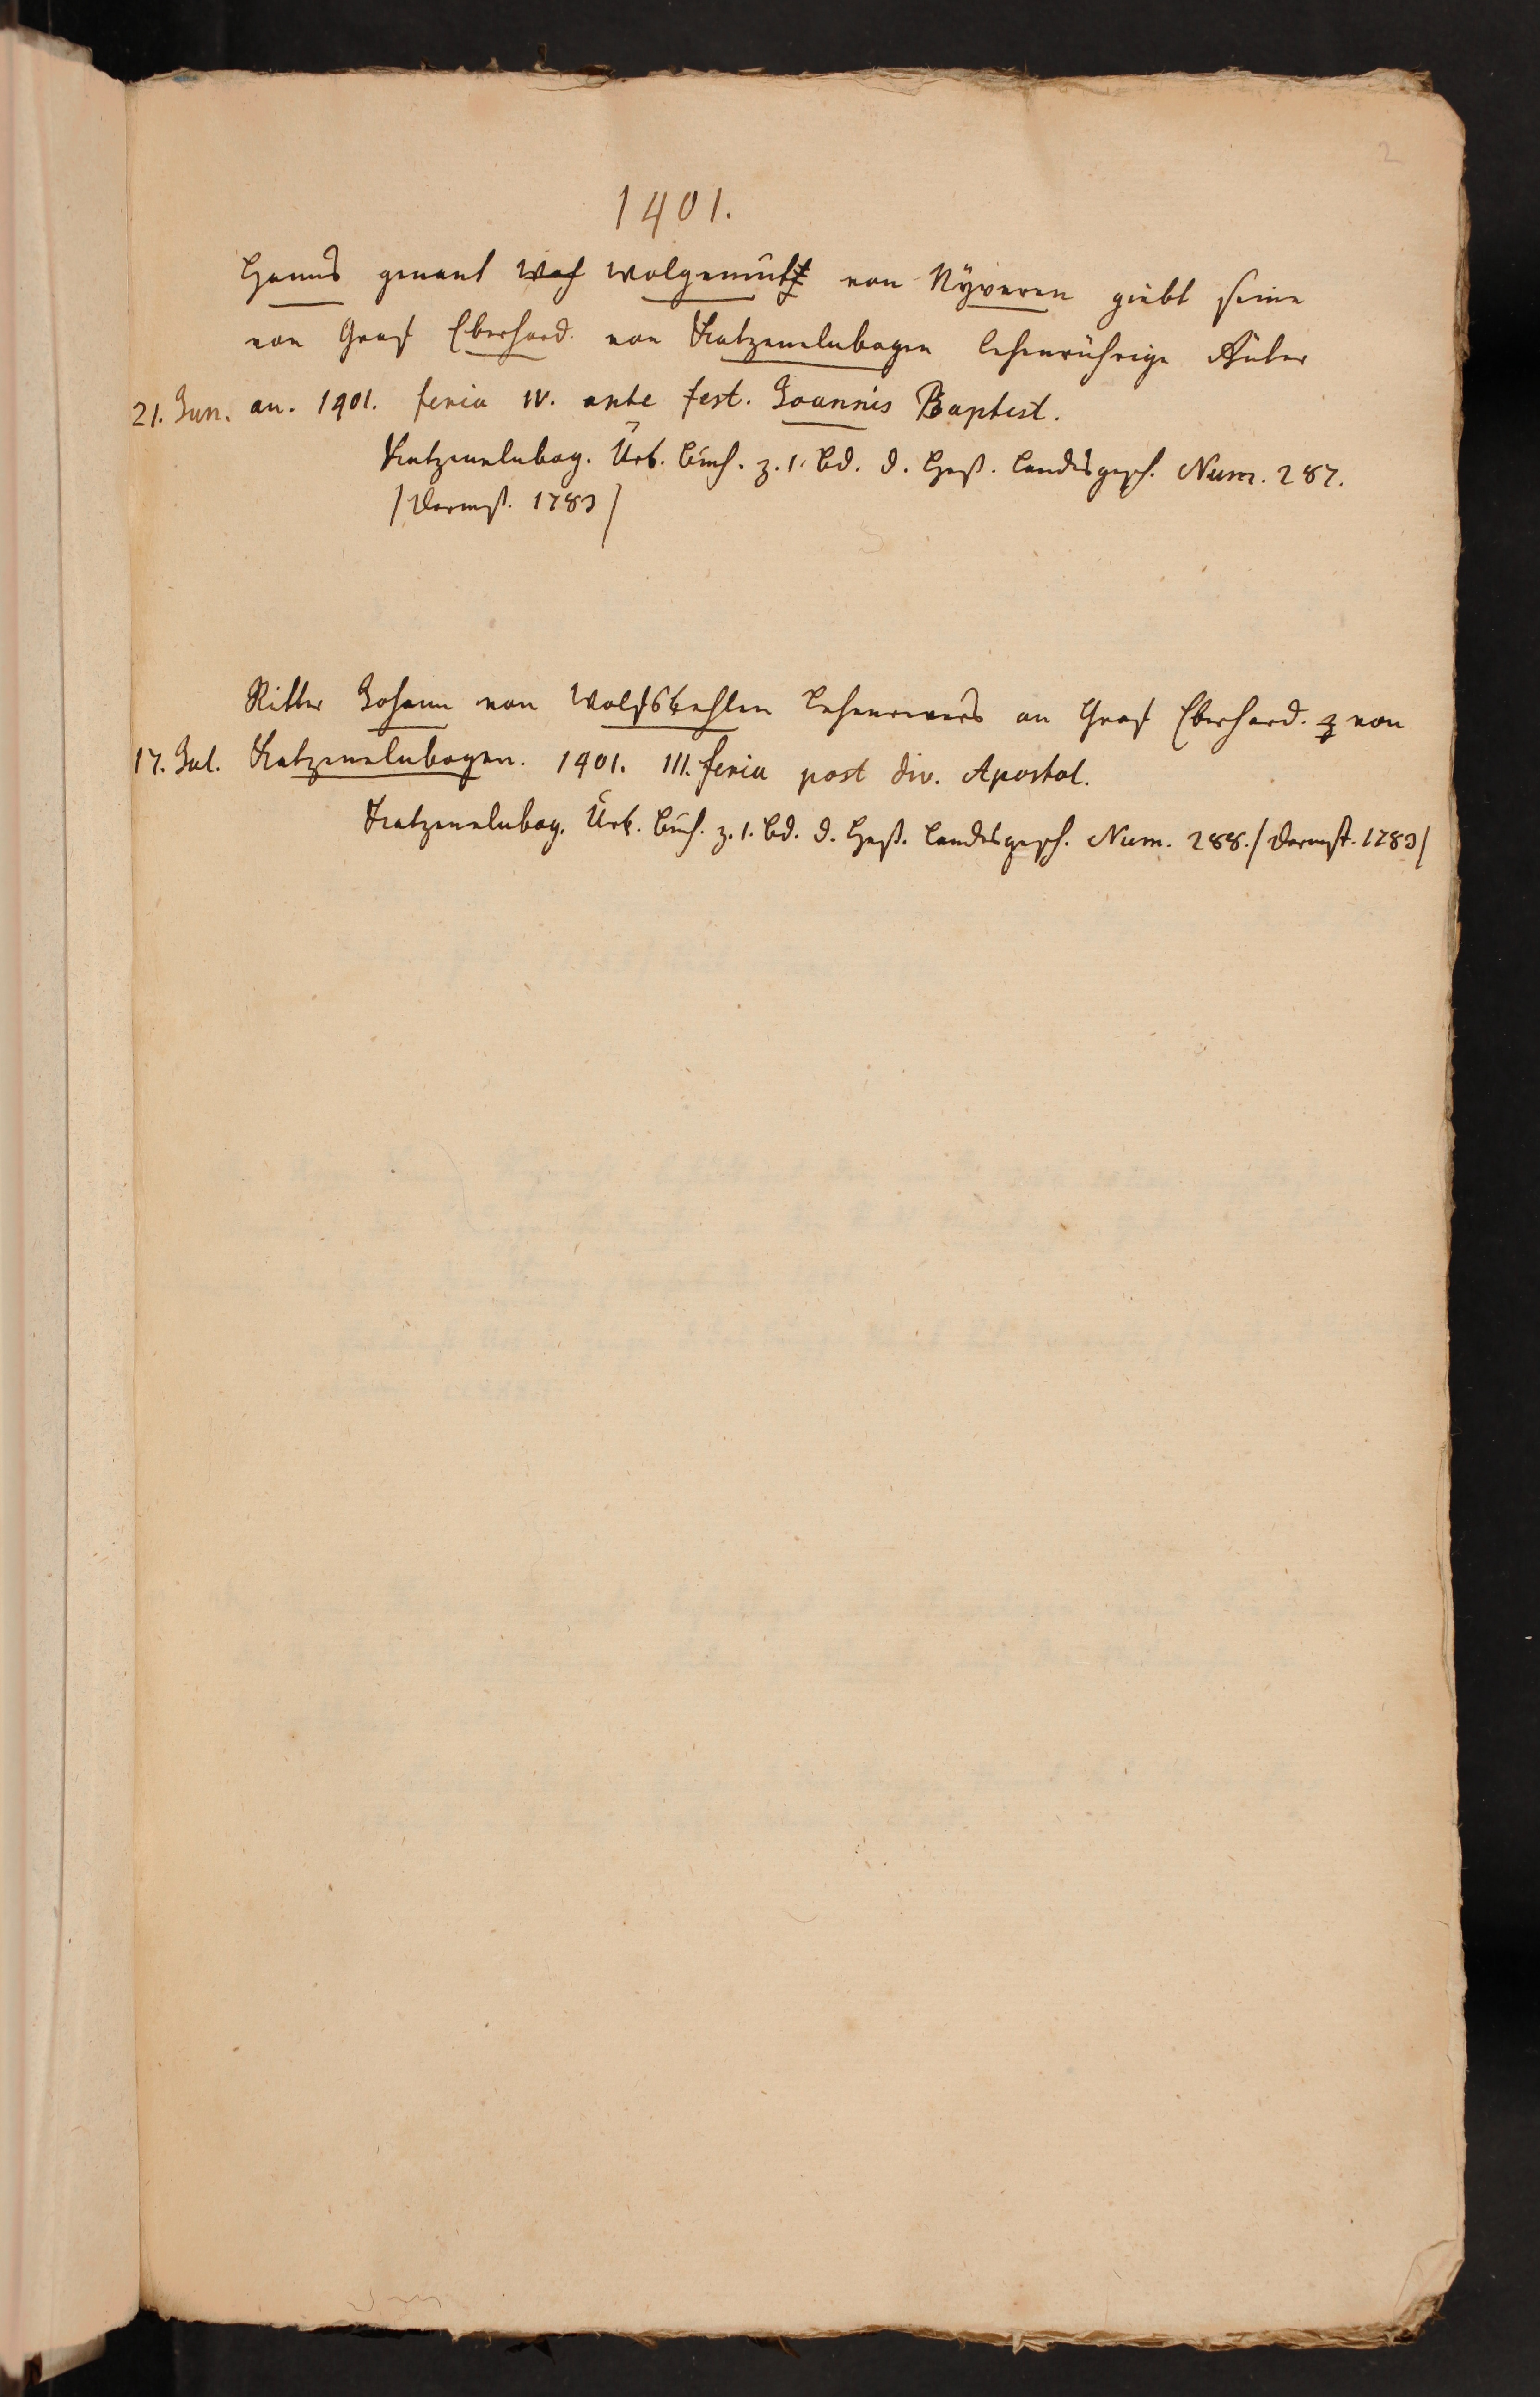 2
1401.
Henns genant <s>Woh</s> Wolgemut von Nyveren giebt seine
von Graf Eberhard. von Katzenelnbogen lehenrührige Güter
21. Jun. an. 1401. feria IV. ante fest. Joannis Baptist.
Katzenelnbog. Urk. Buch. z. 1. Bd. d. Heß. Landesgesch. Num. 287.
/Darmst. 1783/
Ritter Johann von Wolfskehlen Lehenrevers an Graf Eberhard. von
17. Jul. Katzenelnbogen. 1401. III. feria post div. Apostol.
Katzenelnbog. Urk. Buch. z. 1. Bd. d. Heß. Landesgesch. Num. 288. /Darmst. 1783/